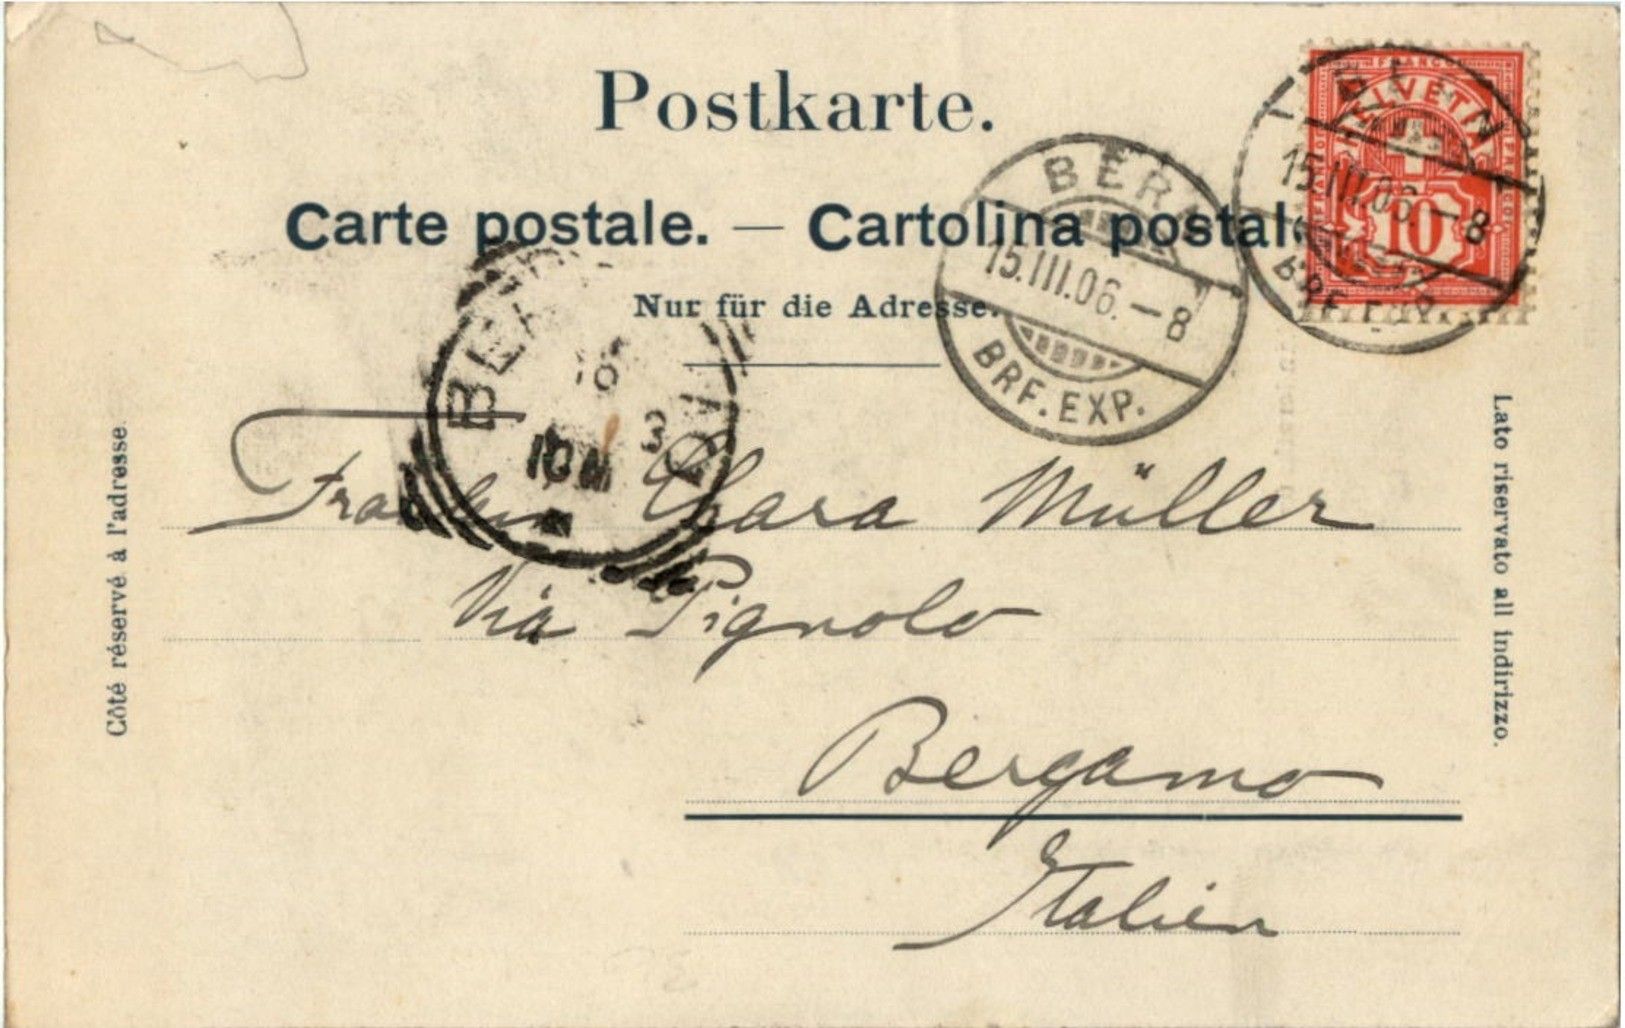 Postkarte.
Carte postale. — Cartolina postale
Nur für die Adresse.
FRANCO
HELVETIA
10
BERN
15.III.06.—8
BRF. EXP.
BERN
15.III.06.—8
BRF. EXP.
10M
Fräulein Clara Müller
Via Pignolo
Bergamo
Italien
Côté réservé à l'adresse.
Lato riservato all indirizzo.